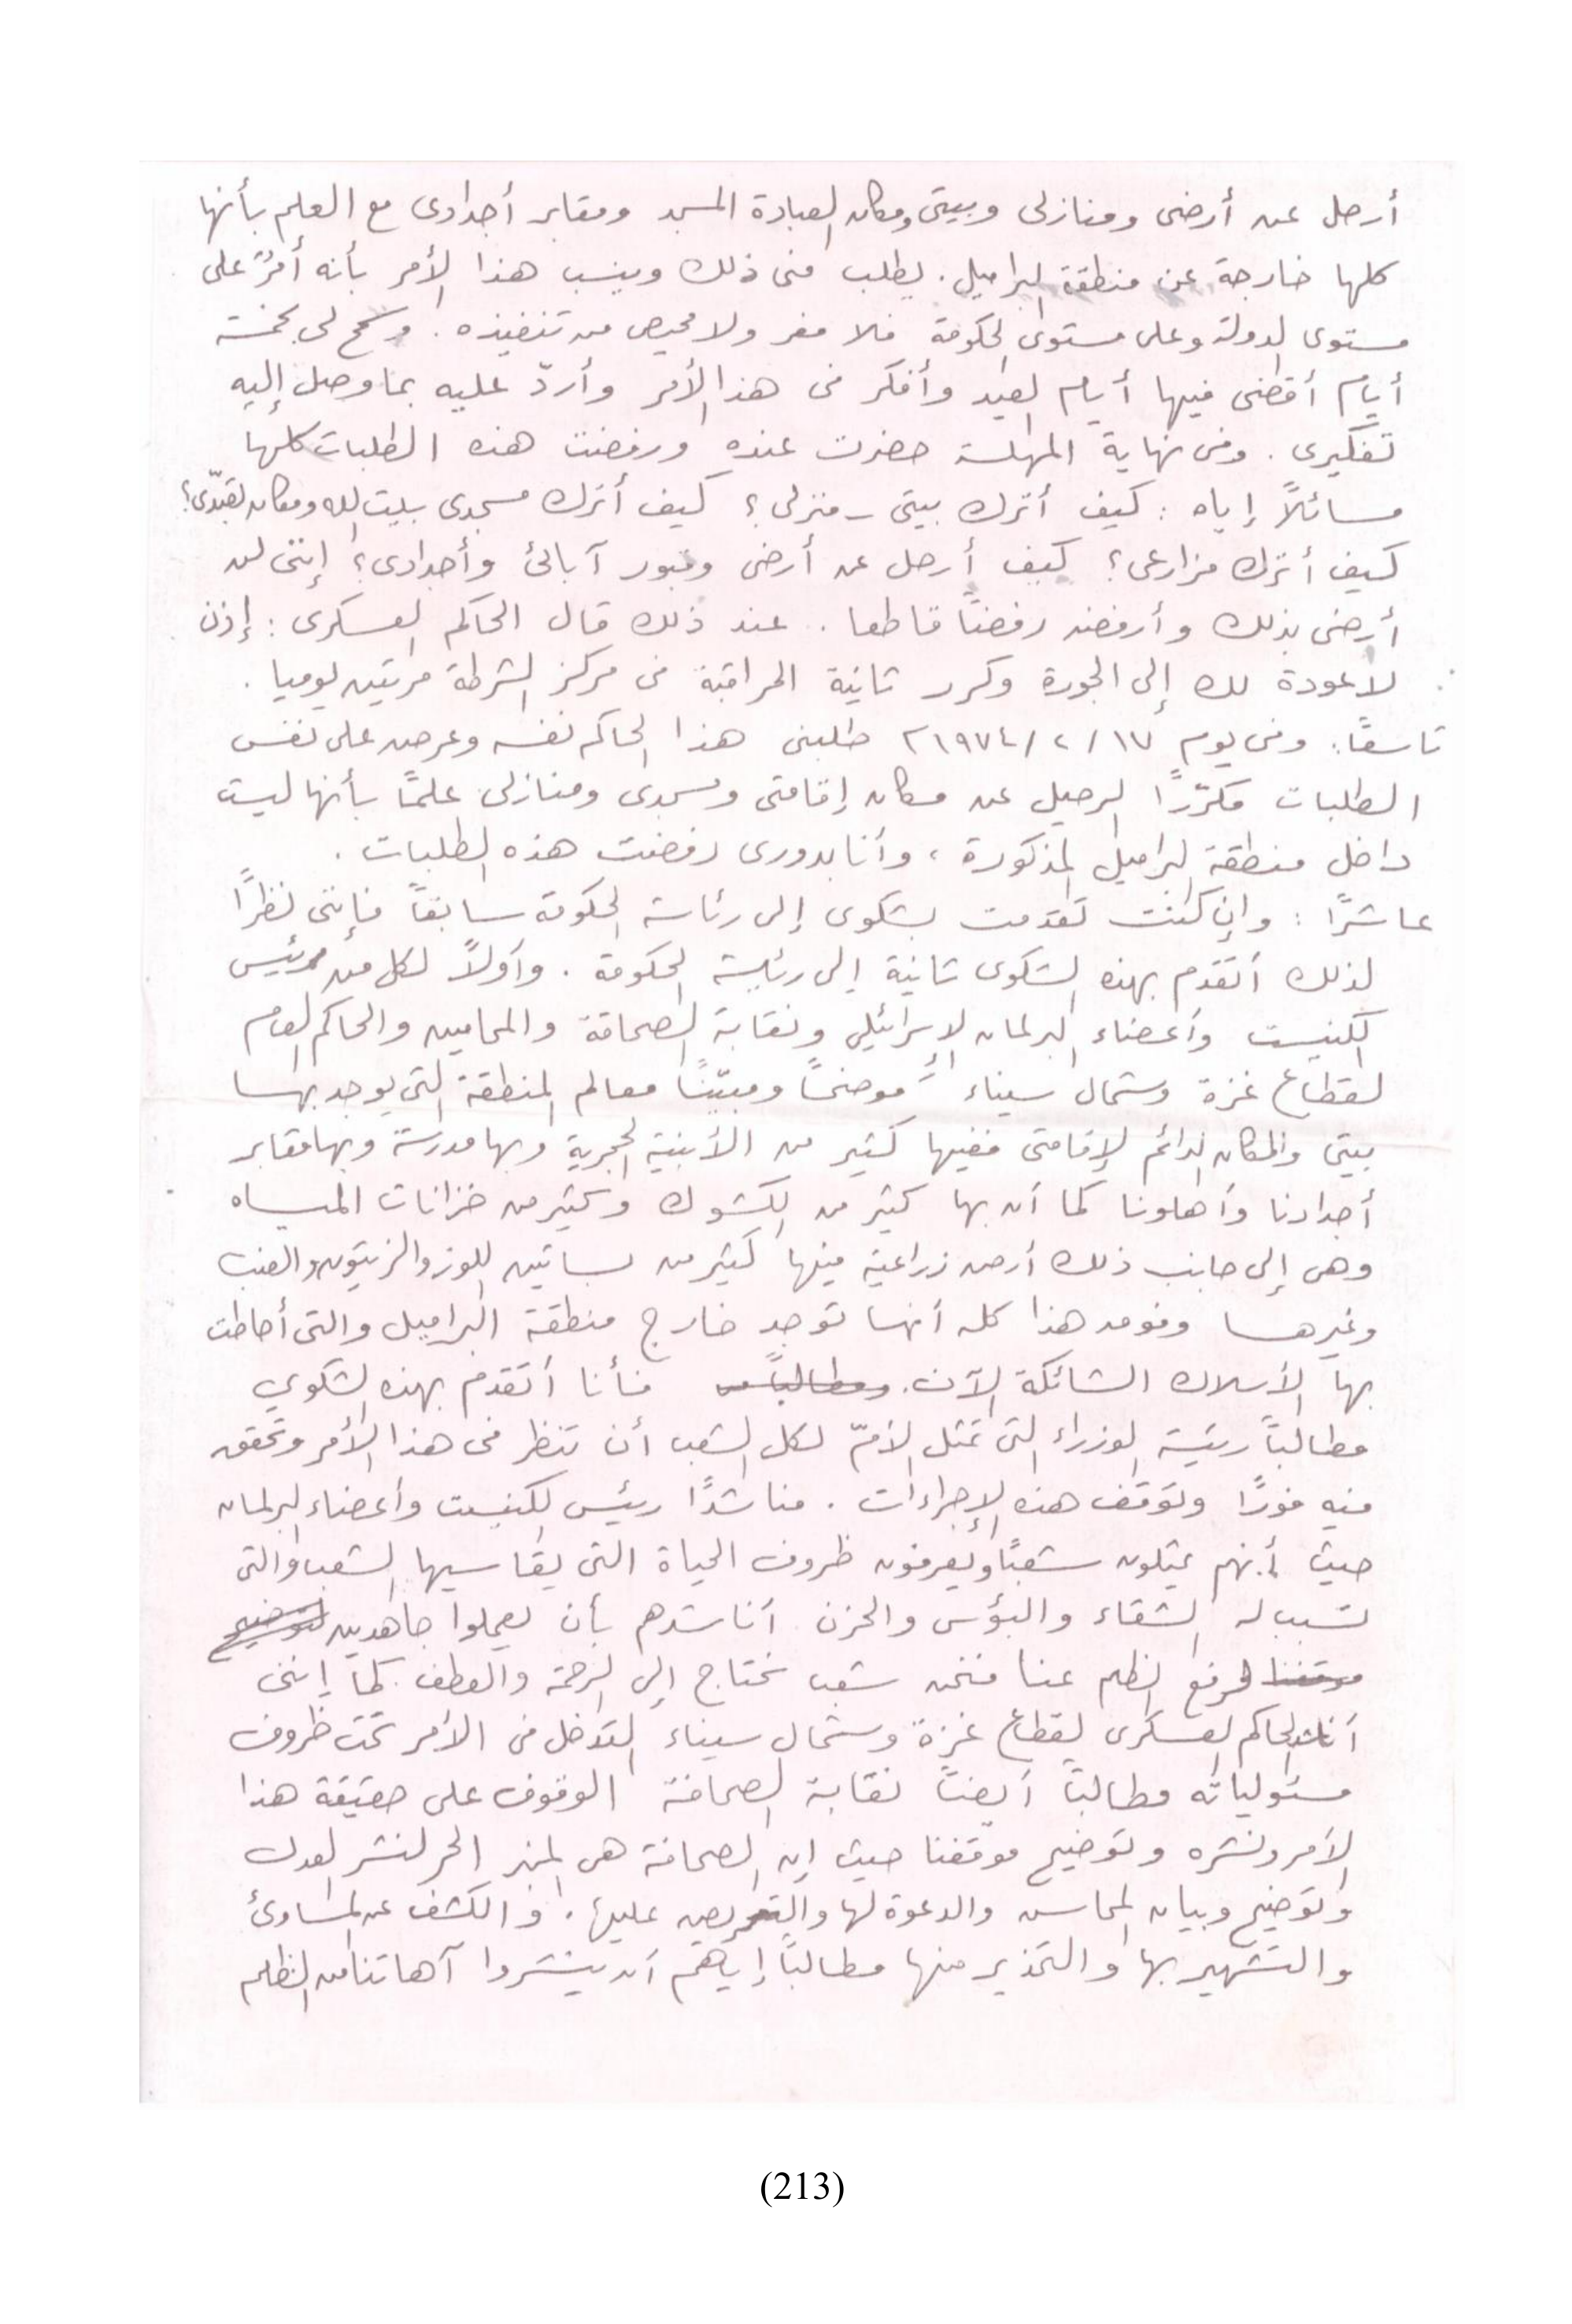 أرحل عن أرضى ومنازلى وبيتى ومكان العبادة المسجد ومقابر أجدادى مع العلم بأنها
كلها خارجة عن منطقة البراميل. يطلب منى ذلك وينسب هذا الأمر بأنه أمرٌ على
مستوى الدولة وعلى مستوى الحكومة فلا مفر ولا محيص من تنفيذه. وسمح لى بخمسة
أيام أقضى فيها أيام العيد وأفكر فى هذا الأمر وأردّ عليه بما وصل إليه
تفكيرى. وفى نهاية المهلة حضرت عنده ورفضت هذه الطلبات كلها
مسائلاً إياه : كيف أترك بيتى - منزلى؟ كيف أترك مسجدى بيت الله ومكان تعبّدى؟
كيف أترك مزارعى؟ كيف أرحل عن أرضى وقبور آبائى وأجدادى؟ إننى لن
أرضى بذلك وأرفضه رفضاً قاطعا. عند ذلك قال الحاكم العسكرى : إذن
لا عودة لك إلى الجورة وكرر ثانية المراقبة فى مركز الشرطة مرتين يوميا.
تاسعًا: وفى يوم ١٧/٢/١٩٧٤م طلبنى هذا الحاكم نفسه وعرض على نفس
الطلبات مكرّرًا الرحيل عن مكان إقامتى ومسجدى ومنازلى علمًا بأنها ليست
داخل منطقة البراميل المذكورة، وأنا بدورى رفضت هذه الطلبات.
عاشرًا : وإن كنت تقدمت بشكوى إلى رئاسة الحكومة سابقاً فإننى نظرًا
لذلك أتقدم بهذه الشكوى ثانية إلى رئيسة الحكومة. وأولاً لكل من رئيس
الكنيست وأعضاء البرلمان الإسرائيلى ونقابة الصحافة والمحامين والحاكم العام
لقطاع غزة وشمال سيناء موضحًا ومبيّنًا معالم المنطقة التى يوجد بها
بيتى والمكان الدائم لإقامتى ففيها كثير من الأبنية الحجرية وبها مدرسة وبها مقابر
أجدادنا وأهلونا كما أن بها كثير من الكشوك وكثير من خزانات المياه
وهى إلى جانب ذلك أرض زراعية فيها كثير من بساتين اللوز والزيتون والعنب
وغيرها وفوق هذا كله أنها توجد خارج منطقة البراميل والتى أحاطت
بها الأسلاك الشائكة الآن. ومطالباً من فأنا أتقدم بهذه الشكوى
مطالباً رئيسة الوزراء التى تمثل الأمّ لكل الشعب أن تنظر فى هذا الأمر وتحقق
فيه فورًا وتوقف هذه الإجراءات. مناشدًا رئيس الكنيست وأعضاء البرلمان
حيث أنهم يمثلون شعبًا ويعرفون ظروف الحياة التى يقاسيها الشعب والتى
تسبب له الشقاء والبؤس والحزن أناشدهم بأن يعملوا جاهدين لتوضيح
موقفنا لرفع الظلم عنا فنحن شعب نحتاج إلى الرحمة والعطف. كما إننى
أناشد الحاكم العسكرى لقطاع غزة وشمال سيناء التدخل فى الأمر تحت ظروف
مسئولياته مطالباً أيضاً نقابة الصحافة الوقوف على حقيقة هذا
الأمر ونشره وتوضيح موقفنا حيث إن الصحافة هى المنبر الحر لنشر العدل
وتوضيح وبيان المحاسن والدعوة لها والتحريص عليها. والكشف عن المساوئ
والتشهير بها والتحذير منها مطالبًا إياهم أن ينشروا آهاتنا من الظلم
(213)